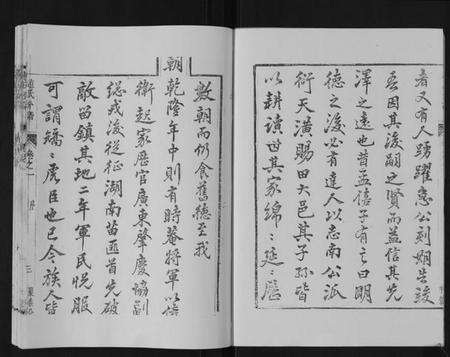 者又有人踴躍急公剞劂告竣
吾因其後嗣之賢而益信其先
澤之遠也昔孟僖子有言曰明
德之後必有達人以志南公派
衍天潢賜田大邑其子孫皆
以耕讀世其家綿〻延〻歷
數朝而仍食舊德至我
朝乾隆年中則有時菴將軍以侍
衛起家歷官廣東肇慶協副
總戎後從征湖南苗匪首先破
敵留鎮其地二年軍民悅服
可謂矯〻虎臣也已今族人皆